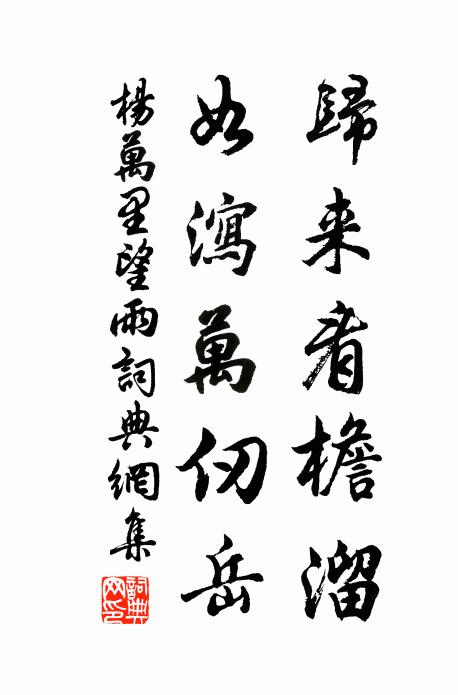 歸来看檐溜
如瀉萬仞岳
楊萬里望雨詞典網集
詞典
网印